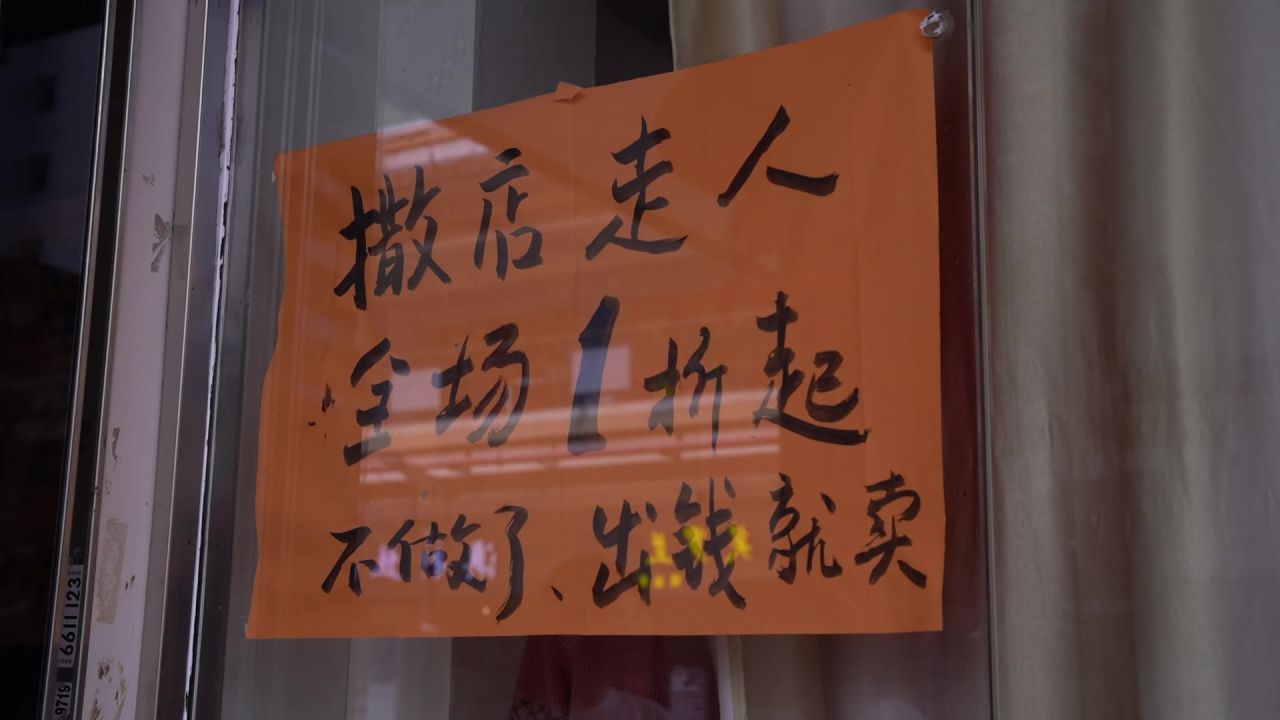 撒店走人
全场1折起
不做了、出钱就卖
6611123
9719